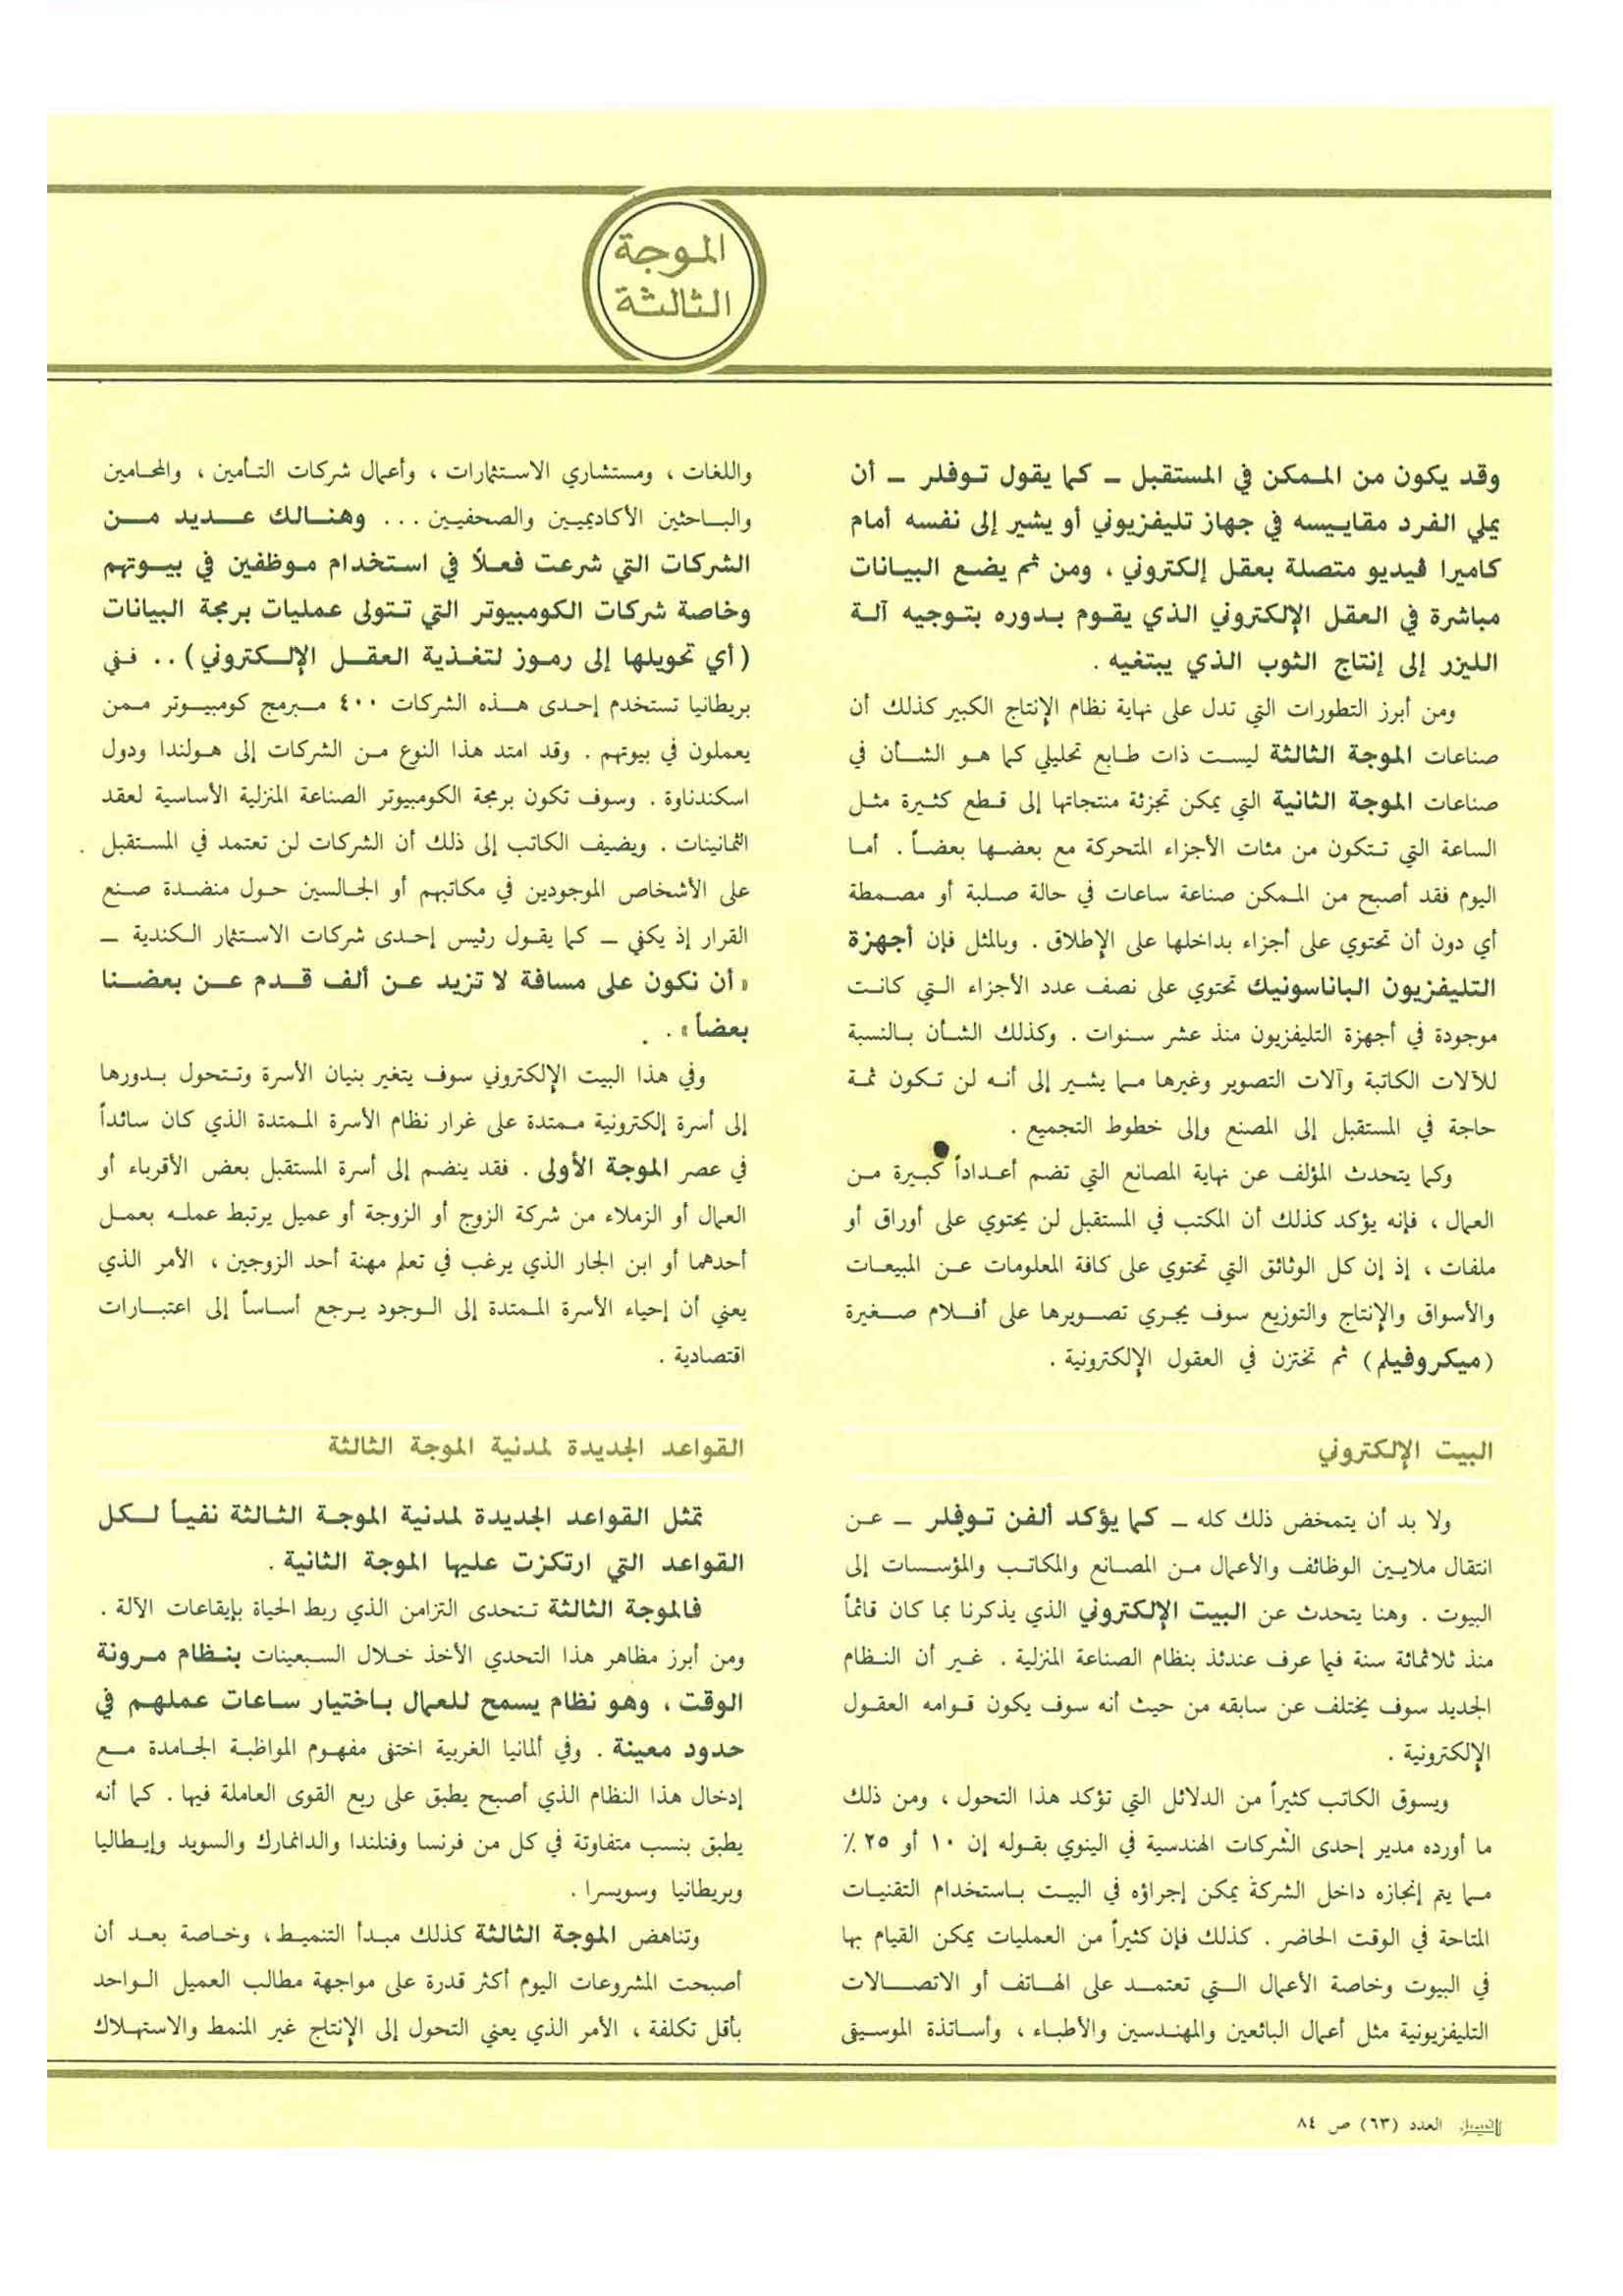 الموجة
الثالثة
وقد يكون من الممكن في المستقبل – كما يقول توفلر – أن
يملي الفرد مقاييسه في جهاز تليفزيوني أو يشير إلى نفسه أمام
كاميرا ڤيديو متصلة بعقل إلكتروني ، ومن ثم يضع البيانات
مباشرة في العقل الإلكتروني الذي يقوم بدوره بتوجيه آلة
الليزر إلى إنتاج الثوب الذي يبتغيه .
ومن أبرز التطورات التي تدل على نهاية نظام الإنتاج الكبير كذلك أن
صناعات الموجة الثالثة ليست ذات طابع تحليلي كما هو الشأن في
صناعات الموجة الثانية التي يمكن تجزئة منتجاتها إلى قطع كثيرة مثل
الساعة التي تتكون من مئات الأجزاء المتحركة مع بعضها بعضاً . أما
اليوم فقد أصبح من الممكن صناعة ساعات في حالة صلبة أو مصمطة
أي دون أن تحتوي على أجزاء بداخلها على الإطلاق . وبالمثل فإن أجهزة
التليفزيون الباناسونيك تحتوي على نصف عدد الأجزاء التي كانت
موجودة في أجهزة التليفزيون منذ عشر سنوات . وكذلك الشأن بالنسبة
للآلات الكاتبة وآلات التصوير وغيرها مما يشير إلى أنه لن تكون ثمة
حاجة في المستقبل إلى المصنع وإلى خطوط التجميع .
وكما يتحدث المؤلف عن نهاية المصانع التي تضم أعداداً كبيرة من
العمال ، فإنه يؤكد كذلك أن المكتب في المستقبل لن يحتوي على أوراق أو
ملفات ، إذ إن كل الوثائق التي تحتوي على كافة المعلومات عن المبيعات
والأسواق والإنتاج والتوزيع سوف يجري تصويرها على أفلام صغيرة
(ميكروفيلم) ثم تختزن في العقول الإلكترونية .
البيت الإلكتروني
ولا بد أن يتمخض ذلك كله – كما يؤكد ألفن توفلر – عن
انتقال ملايين الوظائف والأعمال من المصانع والمكاتب والمؤسسات إلى
البيوت . وهنا يتحدث عن البيت الإلكتروني الذي يذكرنا بما كان قائماً
منذ ثلاثمائة سنة فيما عرف عندئذ بنظام الصناعة المنزلية . غير أن النظام
الجديد سوف يختلف عن سابقه من حيث أنه سوف يكون قوامه العقول
الإلكترونية .
ويسوق الكاتب كثيراً من الدلائل التي تؤكد هذا التحول ، ومن ذلك
ما أورده مدير إحدى الشركات الهندسية في الينوي بقوله إن ١٠ أو ٢٥ ٪
مما يتم إنجازه داخل الشركة يمكن إجراؤه في البيت باستخدام التقنيات
المتاحة في الوقت الحاضر . كذلك فإن كثيراً من العمليات يمكن القيام بها
في البيوت وخاصة الأعمال التي تعتمد على الهاتف أو الاتصالات
التليفزيونية مثل أعمال البائعين والمهندسين والأطباء ، وأساتذة الموسيقى
واللغات ، ومستشاري الاستثمارات ، وأعمال شركات التأمين ، والمحامين
والباحثين الأكاديميين والصحفيين ... وهنالك عديد من
الشركات التي شرعت فعلاً في استخدام موظفين في بيوتهم
وخاصة شركات الكومبيوتر التي تتولى عمليات برمجة البيانات
(أي تحويلها إلى رموز لتغذية العقل الإلكتروني) .. ففي
بريطانيا تستخدم إحدى هذه الشركات ٤٠٠ مبرمج كومبيوتر ممن
يعملون في بيوتهم . وقد امتد هذا النوع من الشركات إلى هولندا ودول
اسكندناوة . وسوف تكون برمجة الكومبيوتر الصناعة المنزلية الأساسية لعقد
الثمانينات . ويضيف الكاتب إلى ذلك أن الشركات لن تعتمد في المستقبل
على الأشخاص الموجودين في مكاتبهم أو الجالسين حول منضدة صنع
القرار إذ يكفي – كما يقول رئيس إحدى شركات الاستثمار الكندية –
« أن نكون على مسافة لا تزيد عن ألف قدم عن بعضنا
بعضاً » .
وفي هذا البيت الإلكتروني سوف يتغير بنيان الأسرة وتتحول بدورها
إلى أسرة إلكترونية ممتدة على غرار نظام الأسرة الممتدة الذي كان سائداً
في عصر الموجة الأولى . فقد ينضم إلى أسرة المستقبل بعض الأقرباء أو
العمال أو الزملاء من شركة الزوج أو الزوجة أو عميل يرتبط عمله بعمل
أحدهما أو ابن الجار الذي يرغب في تعلم مهنة أحد الزوجين ، الأمر الذي
يعني أن إحياء الأسرة الممتدة إلى الوجود يرجع أساساً إلى اعتبارات
اقتصادية .
القواعد الجديدة لمدنية الموجة الثالثة
تمثل القواعد الجديدة لمدنية الموجة الثالثة نفياً لكل
القواعد التي ارتكزت عليها الموجة الثانية .
فالموجة الثالثة تتحدى التزامن الذي ربط الحياة بإيقاعات الآلة .
ومن أبرز مظاهر هذا التحدي الأخذ خلال السبعينات بنظام مرونة
الوقت ، وهو نظام يسمح للعمال باختيار ساعات عملهم في
حدود معينة . وفي ألمانيا الغربية اختفى مفهوم المواظبة الجامدة مع
إدخال هذا النظام الذي أصبح يطبق على ربع القوى العاملة فيها . كما أنه
يطبق بنسب متفاوتة في كل من فرنسا وفنلندا والدانمارك والسويد وإيطاليا
وبريطانيا وسويسرا .
وتناهض الموجة الثالثة كذلك مبدأ التنميط ، وخاصة بعد أن
أصبحت المشروعات اليوم أكثر قدرة على مواجهة مطالب العميل الواحد
بأقل تكلفة ، الأمر الذي يعني التحول إلى الإنتاج غير المنمط والاستهلاك
الفيصل العدد (٦٣) ص ٨٤